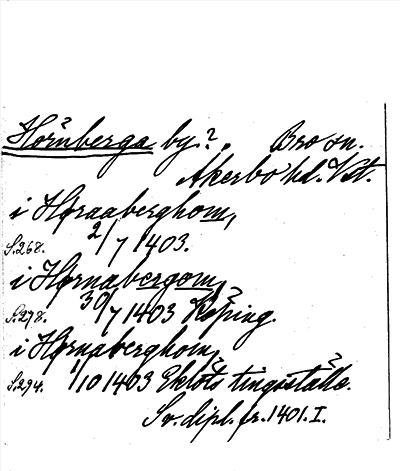 Hörnberga by?. Bro sn.
Åkerbo hd. Vstm.
i Hørnaberghom,
S.268. 2/7 1403.
i Hørnabergom,
S.278. 30/7 1403 Köping.
i Hørnaberghom,
S.294. 1/10 1403 Eklöts tingsställe.
Sv. dipl. fr. 1401. I.